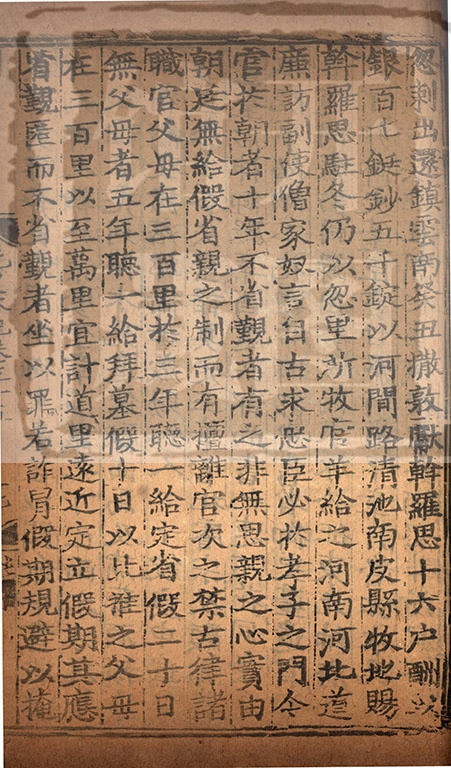 忽剌出還鎮雲南癸丑撒敦獻斡羅思十六户酬以
銀百七鋌鈔五千錠以河間路清池南皮縣牧地賜
斡羅思駐冬仍以忽里所牧官羊給之河南河北道
廉訪副使僧家奴言自古求忠臣必於孝子之門今
官於朝者十年不省覲者有之非無思親之心實由
朝廷無給假省親之制而有擅離官次之禁古律諸
職官父母在三百里於三年聽一給定省假二十日
無父母者五年聽一給拜墓假十日以此推之父母
在三百里以至萬里宜計道里遠近定立假期其應
省覲匿而不省覲者坐以罪若詐冒假期規避以掩